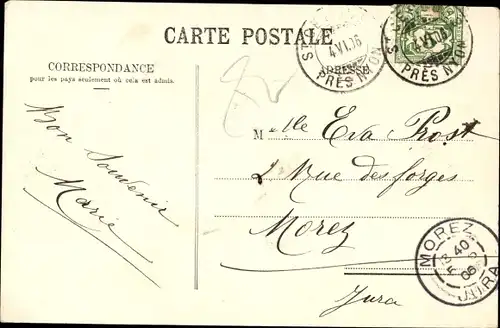 CARTE POSTALE
CORRESPONDANCE
pour les pays seulement où cela est admis.
ADRESSE
ST
4 VI.06
PRÈS NYON
ST
VI.06
PRÈS NYON
Bon Souvenir
Marie
Mlle Eva Prost
2 Rue des forges
Morez
Jura
MOREZ
40
5
06
JURA